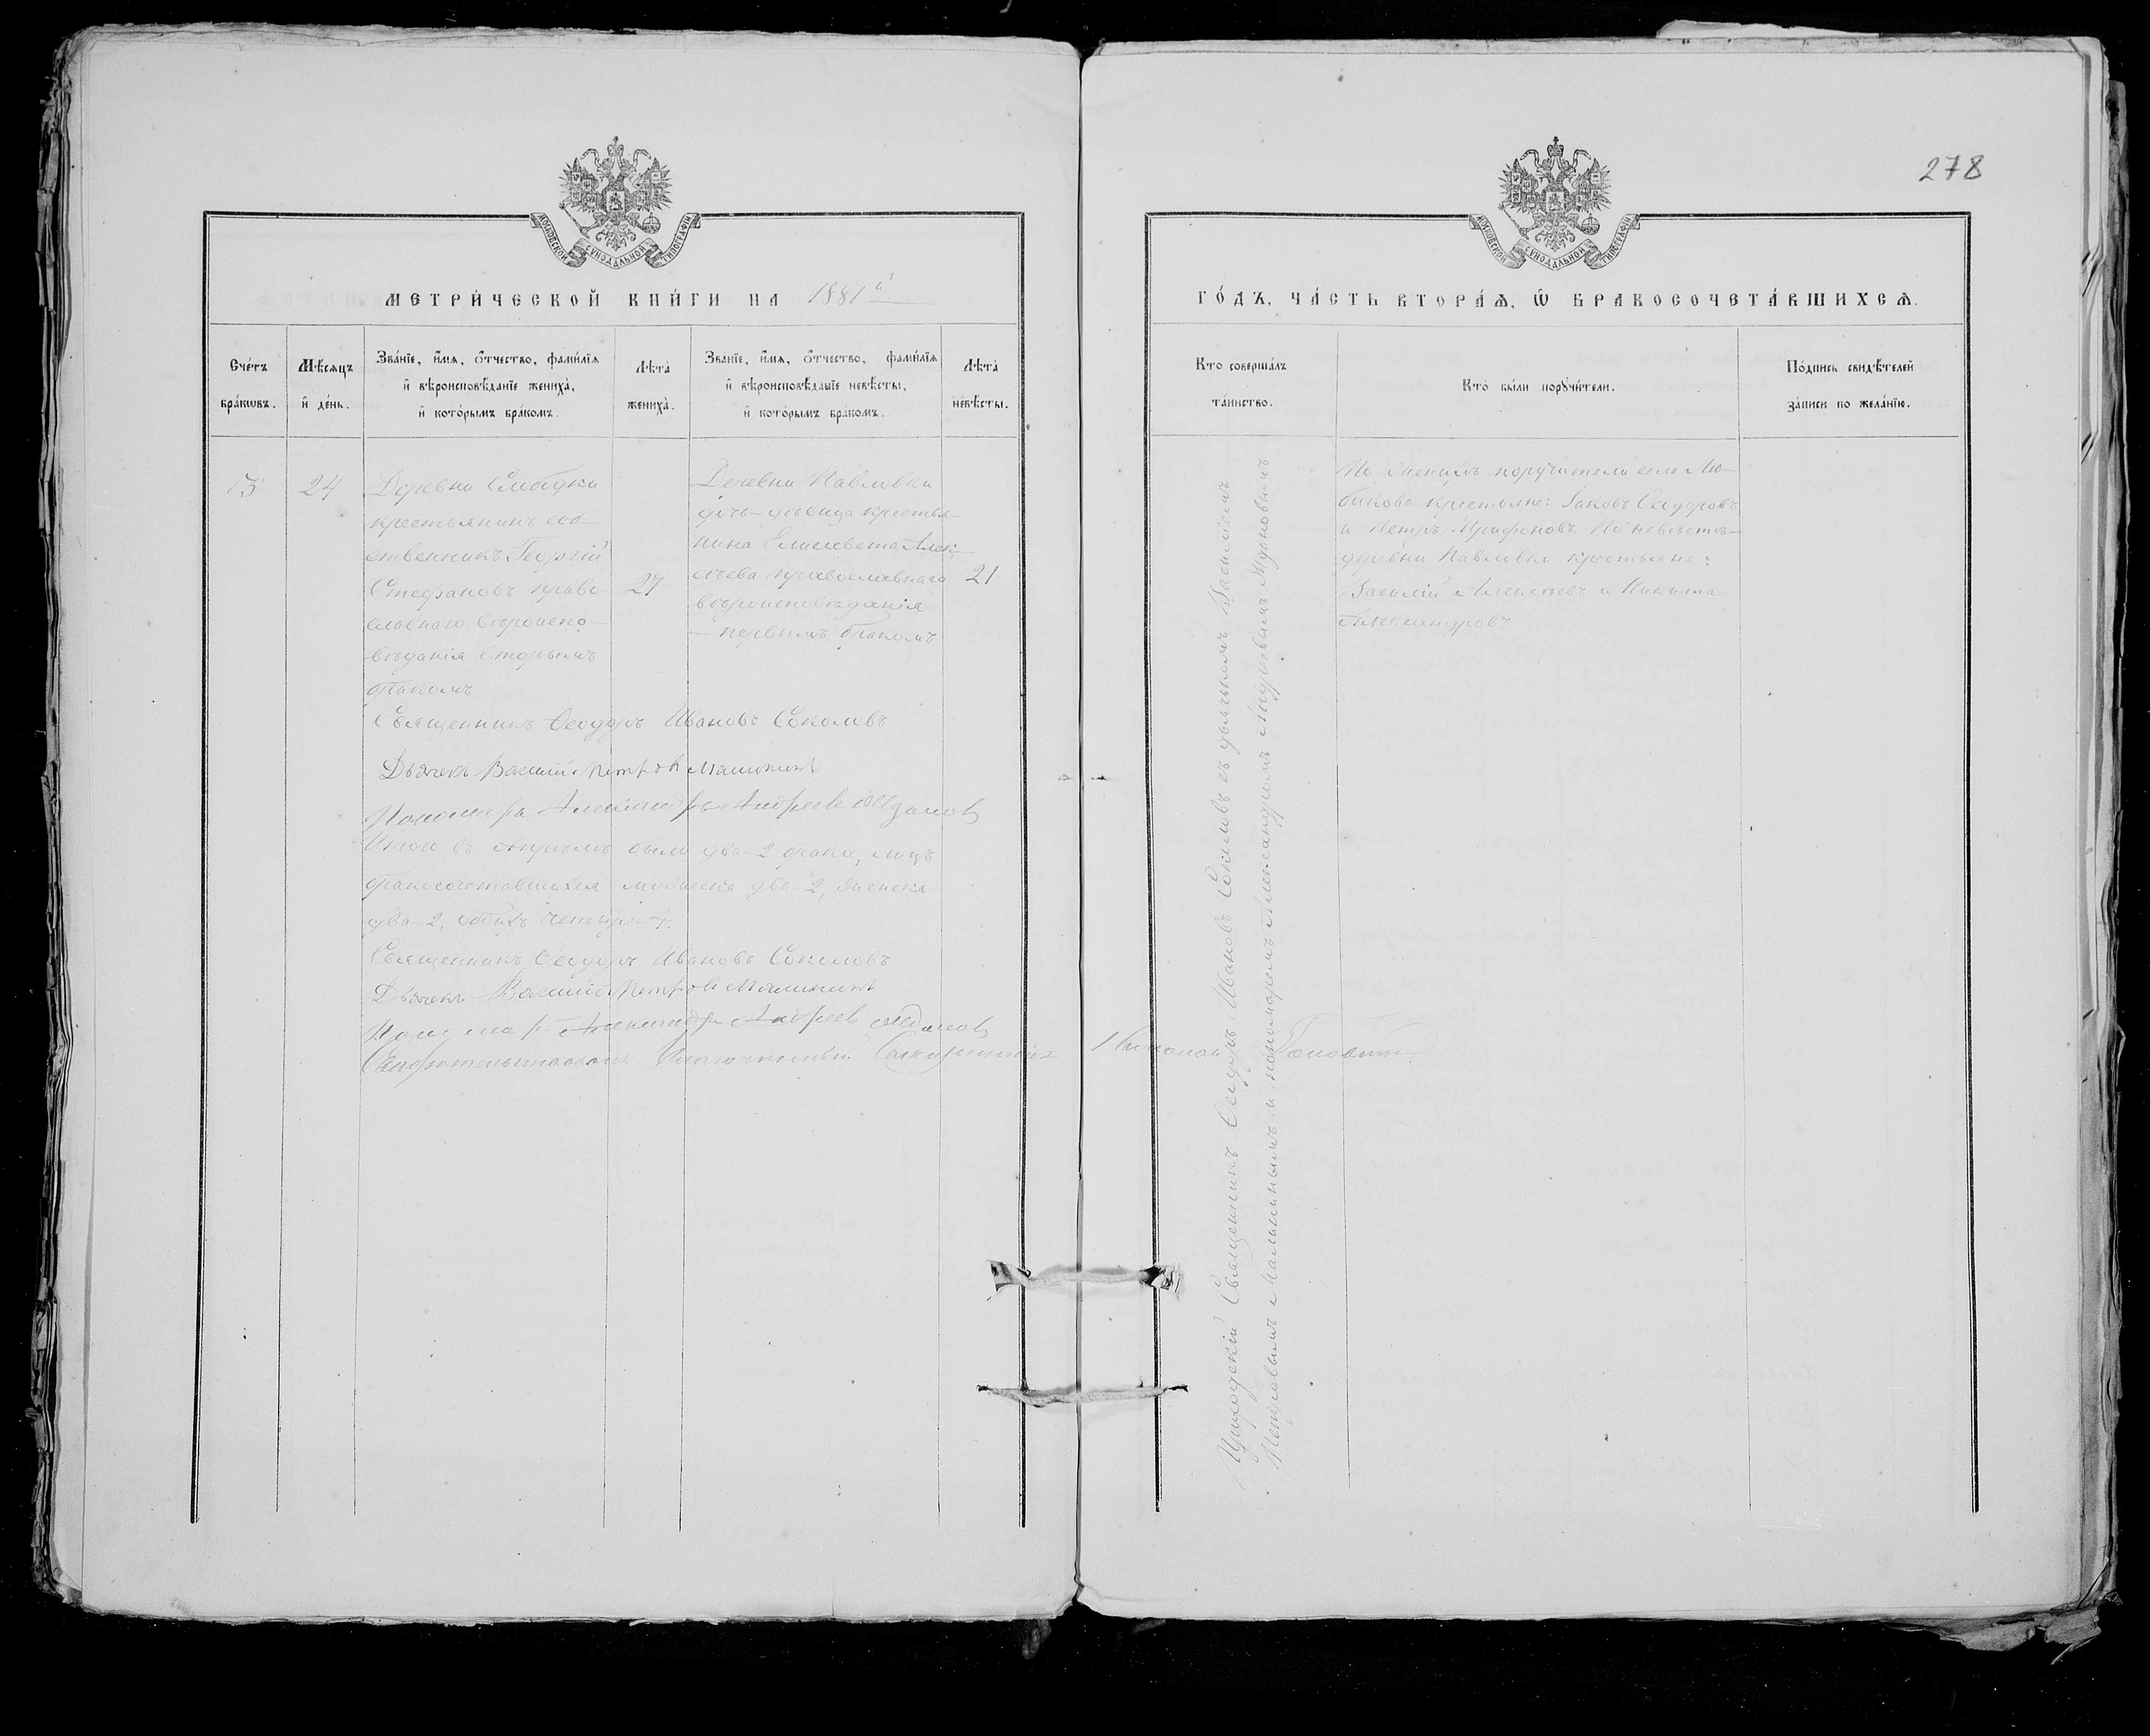 МОСКОВСКОЙ СѴНОДАЛЬНОЙ ТИПОГРАФІИ
МЕТРИ́ЧЕСКОЙ КНИ́ГИ НА 1881й
Сче́тъ бра́кѡвъ.
Мѣ́сяцъ и҆ де́нь.
Зва́нїе, и҆́мѧ, ѻ҆́тчество, фами́лїѧ
и҆ вѣроисповѣ́данїе жениха̀,
и҆ кото́рымъ бра́комъ.
Лѣ́та̀
жениха̀.
Зва́нїе, и҆́мѧ, ѻ҆́тчество, фами́лїѧ
и҆ вѣроисповѣ́данїе невѣ́сты,
и҆ кото́рымъ бра́комъ.
Лѣ́та̀
невѣ́сты.
24
Деревни Слободки
крестьянинъ соб-
ственникъ Георгій
Стефановъ право-
славнаго вѣроиспо-
вѣданія вторымъ
бракомъ
27
Деревни Павловки
дочь-дѣвица крестья-
нина Елисавета Алек-
сѣева православнаго
вѣроисповѣданія
- первымъ бракомъ
21
Священникъ Ѳеодоръ Ивановъ Соколовъ
Дьячекъ Василій Петровъ Малининъ
Пономарь Александръ Андреевъ
Итого въ Апрѣлѣ было два-2 брака, лицъ
бракосочетавшихся мужеска два-2, женска
два-2, обоихъ четыре-4.
Священникъ Ѳеодоръ Ивановъ Соколовъ
Дьячекъ Василій Петровъ Малининъ
Пономарь Александръ Андреевъ
Благочинный Священникъ Николай
278
МОСКОВСКОЙ СѴНОДАЛЬНОЙ ТИПОГРАФІИ
ГО́ДЪ, ЧА́СТЬ ВТОРА́Ѧ, Ѡ҆ БРАКОСОЧЕТА́ВШИХСѦ.
Кто̀ соверша́лъ
та́инство.
Кто̀ бы́ли порꙋчи́тели.
По́дпись свидѣ́телей
за́писи по жела́нїю.
Приходскій Священникъ Ѳеодоръ Ивановъ Соколовъ съ дьячкомъ Василіемъ
Петровымъ Малининымъ и пономаремъ Александромъ
По женихѣ поручители села Лю-
бикова крестьяне: Іаковъ Ѳеодоровъ
и Петръ Трифоновъ. По невѣстѣ-
деревни Павловки крестьяне:
Василій Алексѣевъ и Никита
Александровъ